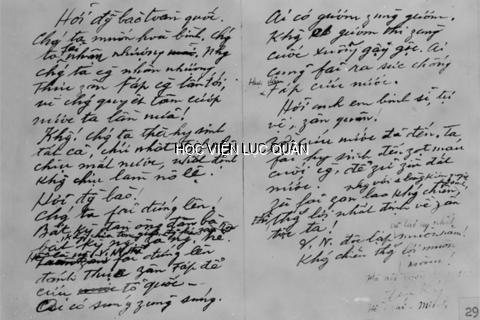 Hỡi đồng bào toàn quốc.
Chúng ta muốn hoà bình, chúng
ta fải nhân nhượng. Nhưng
chúng ta càng nhân nhượng
thực zân Fáp càng lấn tới,
vì chúng quyết tâm cướp
nước ta lần nữa!
Không! chúng ta thà hy sinh
tất cả, chứ nhất định không
chịu mất nước, nhất định
không chịu làm nô lệ.
Hỡi đồng bào!
Chúng ta fải đứng lên!
Bất kỳ đàn ông đàn bà
bất kỳ người già, người trẻ
fải đứng lên
đánh thực zân Fáp để
cứu tổ quốc
Ai có súng zùng súng.
Ai có gươm zùng gươm,
Không có gươm thì zùng
cuốc xuổng gậy gộc. Ai
cũng fải ra sức chống
Fáp cứu nước.
Hỡi anh em binh sĩ, tự
vệ, zân quân!
Giờ cứu nước đã đến, ta
fải hy sinh đến zọt máu
cuối cùng, để zữ zìn đất
nước.
Zù fải zan lao kháng chiến,
thắng lợi nhất định về zân
tộc ta!
V. N. độc lập muôn năm!
Kháng chiến thắng lợi muôn
năm!
HỌC VIỆN LỤC QUÂN
29